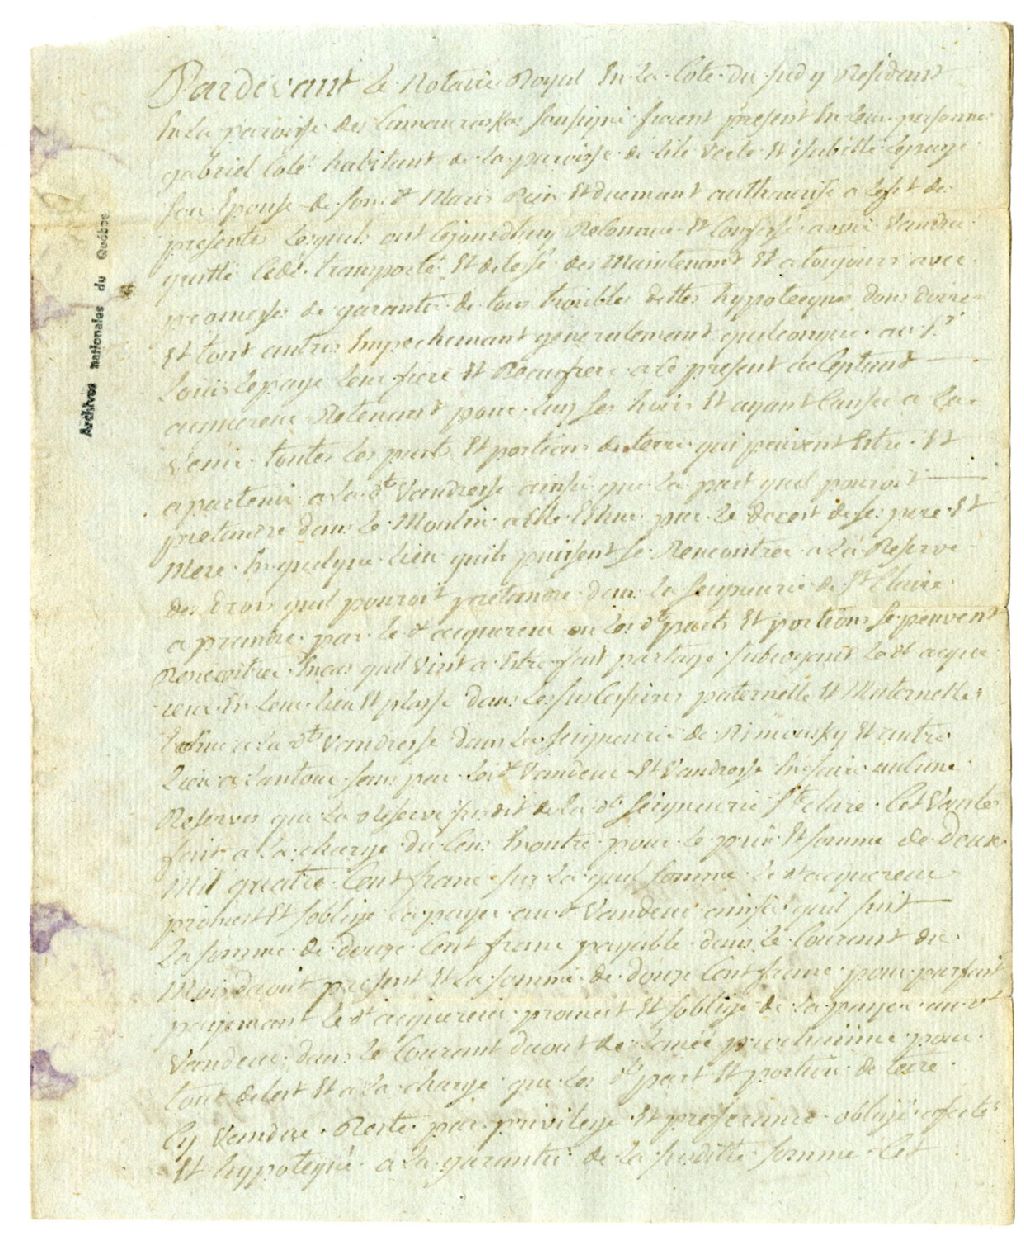 Pardevant le Notaire Royal En La Cote du sud y Residant
En La paroisse des Camouraska Soussigné furent present En leur personnes
gabriel Coté habitant de la paroisse de lile verte Et isabelle Lepage
Son Epouse de son dt Maris Bien Et duemant authaurisé a lefet des
presente Lesquels ont Cejourdhuy Reconnue Et Confessé avoir vandu
quitté Cedé transporté Et delessé des Maintenant Et a toujours avec
promesse de garantir de tous troubles dettes hypoteque dons douaires
Et tout autres Empechemant generalemant quelconque au Sr
Louis Lepage leur frere Et Beaufrere a ce present acceptant
acquereur Retenant pour lui ses hoirs Et ayant Cause a La
venir toutes Les parts Et portions de terre qui peuvent Estre Et
apartenir a La dte Vandresse ainsi que La part quel pouroit
pretandre dans le Moulin a Elle Echue par le deces de ses pere Et
Mere En quelque lieu quils puissent se Rencontrer a La Reserve
des Droits quel pouroit pretandre dans la seigneurie de Ste Claire
a prandre par le dt acquereur ou les dts parts Et portions se peuvent
Rencontrer Encas quil vint a Estre fait partage subrogeant ledt acque
reur En leur lieu Et plasse dans les sucessions paternelle Et Maternelle
Echue a La dte Vandresse dans La seigneurie de Rimousky Et autre
Lieu a Lantour sans par les dt Vandeur Et Vandresse En faire aucune
Reserves que La Reserve susdit de La dt Seigneurie Ste Clare Cet Vante
fait a La charge du Cens En outre pour le prix Et somme de Deux
Mil quatre Cent franc sur La quel somme le dt acquereur
promest Et soblige de payer au dt Vandeur ainsi quil suit
La somme de douze Cent franc payable dans le Courant du
Mois daout present Et La somme de douze Cent franc pour parfait
payemant le dt acquereur promest Et soblige de La payer au dt
Vandeur dans le Courant daout de Lanée prochainne pour
tout delest Et a La charge que les dts part Et portion de terre
Cy Vandue Reste par privilege Et preferance obligé afecté
Et hypotequé a La garantie de La susditte somme Cet
Archives nationales du Québec